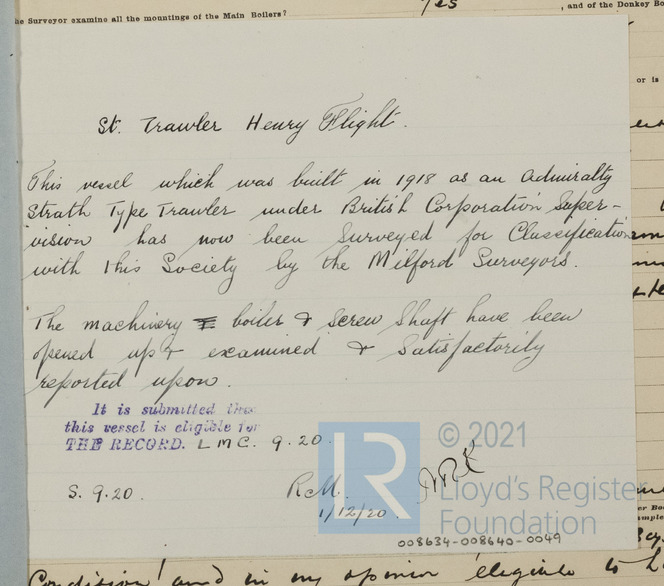 he Surveyor examine all the mountings of the Main Boilers?
Yes
, and of the Donkey Bo
or is
St. Trawler Henry Flight.
This vessel which was built in 1918 as an Admiralty
Strath Type Trawler under British Corporation Super-
vision has now been Surveyed for Classification
with this Society by the Milford Surveyors.
The machinery boiler & Screw Shaft have been
opened up & examined & Satisfactorily
reported upon.
It is submitted that
this vessel is eligible for
THE RECORD. LMC. 9.20.
S. 9.20.
RcM.
1/12/20.
LR
© 2021
Lloyd's Register
Foundation
008634-008640-0049
Condition and in my opinion eligible to